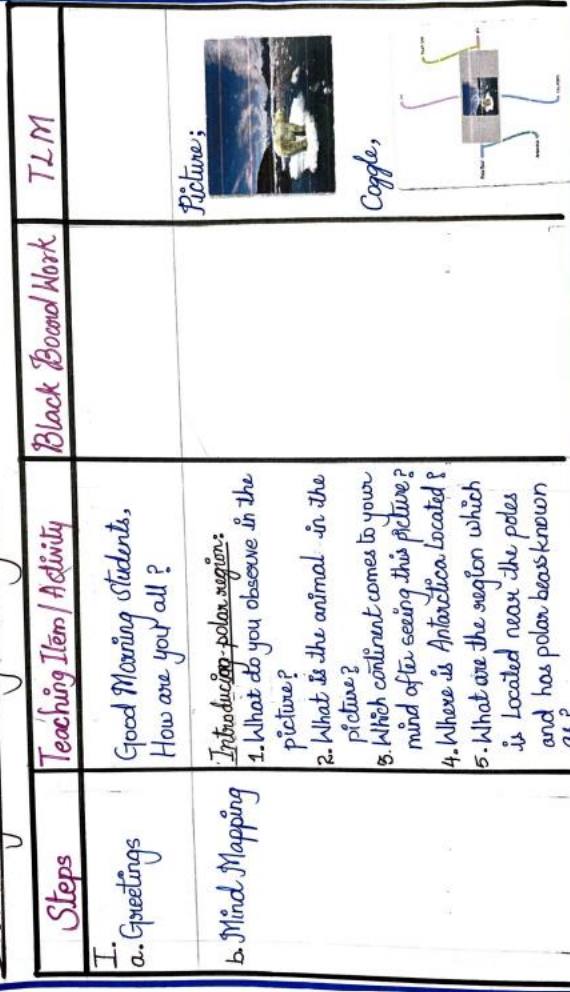 Steps
Teaching Item/Activity
Black Board Work
TLM
I.
a. Greetings
Good Morning Students,
How are you all?
b. Mind Mapping
Introducing-polar region:
1. What do you observe in the
picture?
2. What is the animal in the
picture?
3. Which continent comes to your
mind after seeing this picture?
4. Where is Antarctica Located?
5. What are the region which
is Located near the poles
and has polar bears known
as?
Picture;
Coggle,